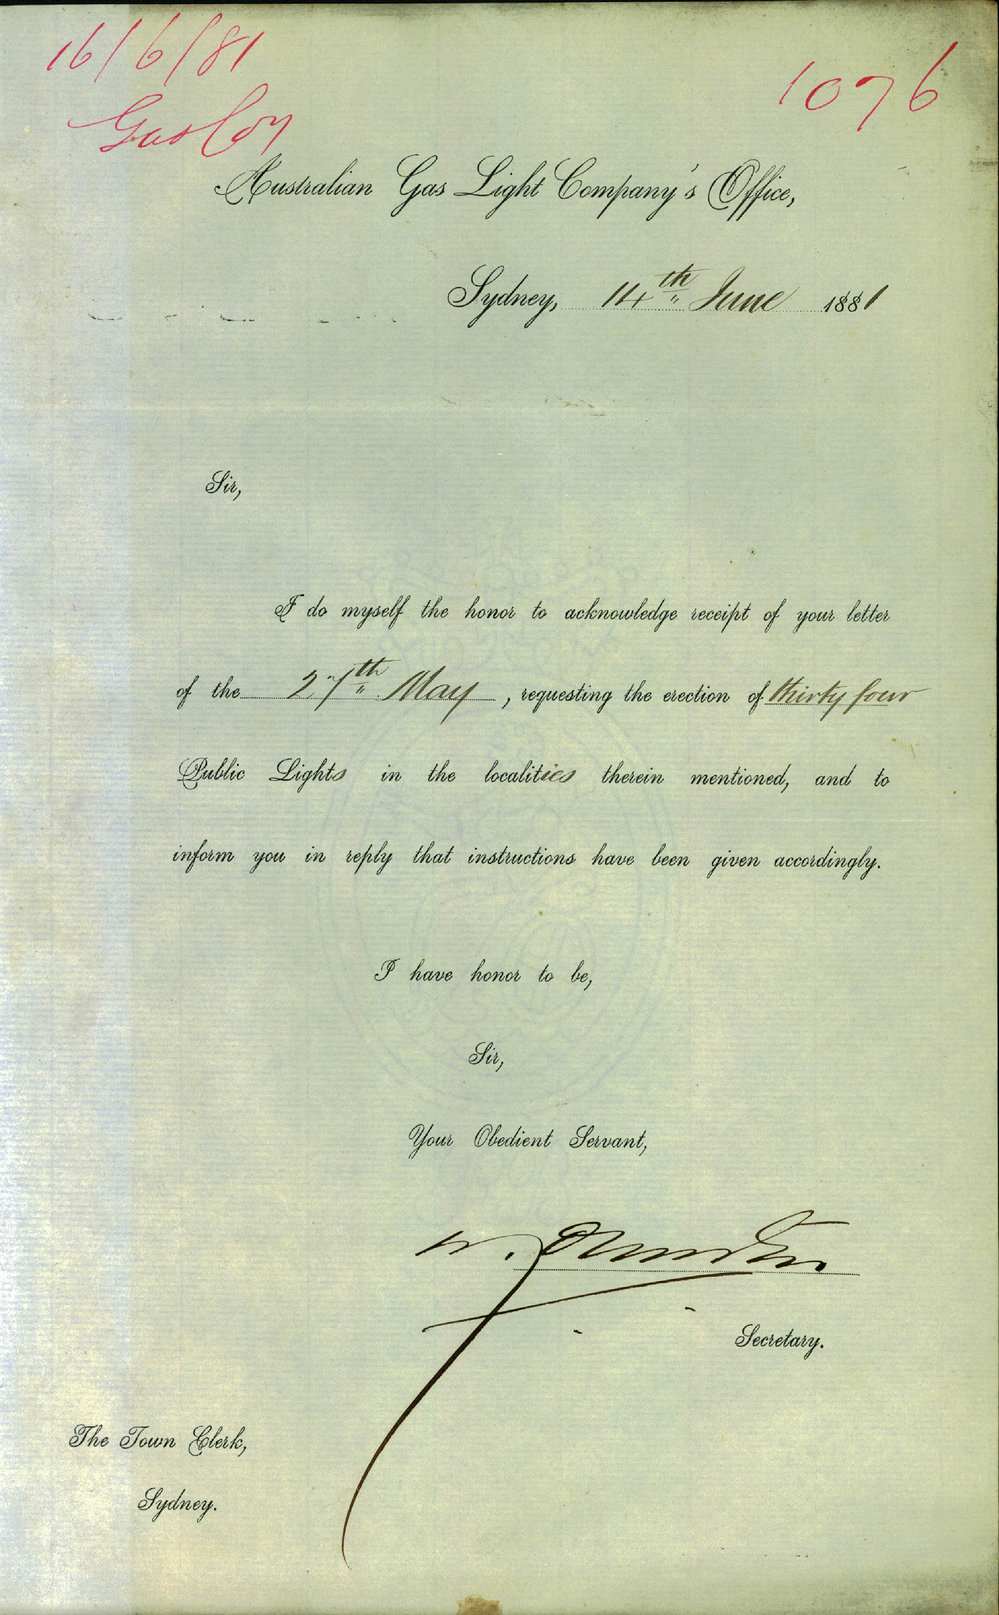 16/6/81
1076
Gas Coy
Australian Gas Light Company's Office,
Sydney, 14th June 1881
Sir,
I do myself the honor to acknowledge receipt of your letter
of the 27th May, requesting the erection of thirty four
Public Lights in the localities therein mentioned, and to
inform you in reply that instructions have been given accordingly.
I have honor to be,
Sir,
Your Obedient Servant,
Secretary.
The Town Clerk,
Sydney.